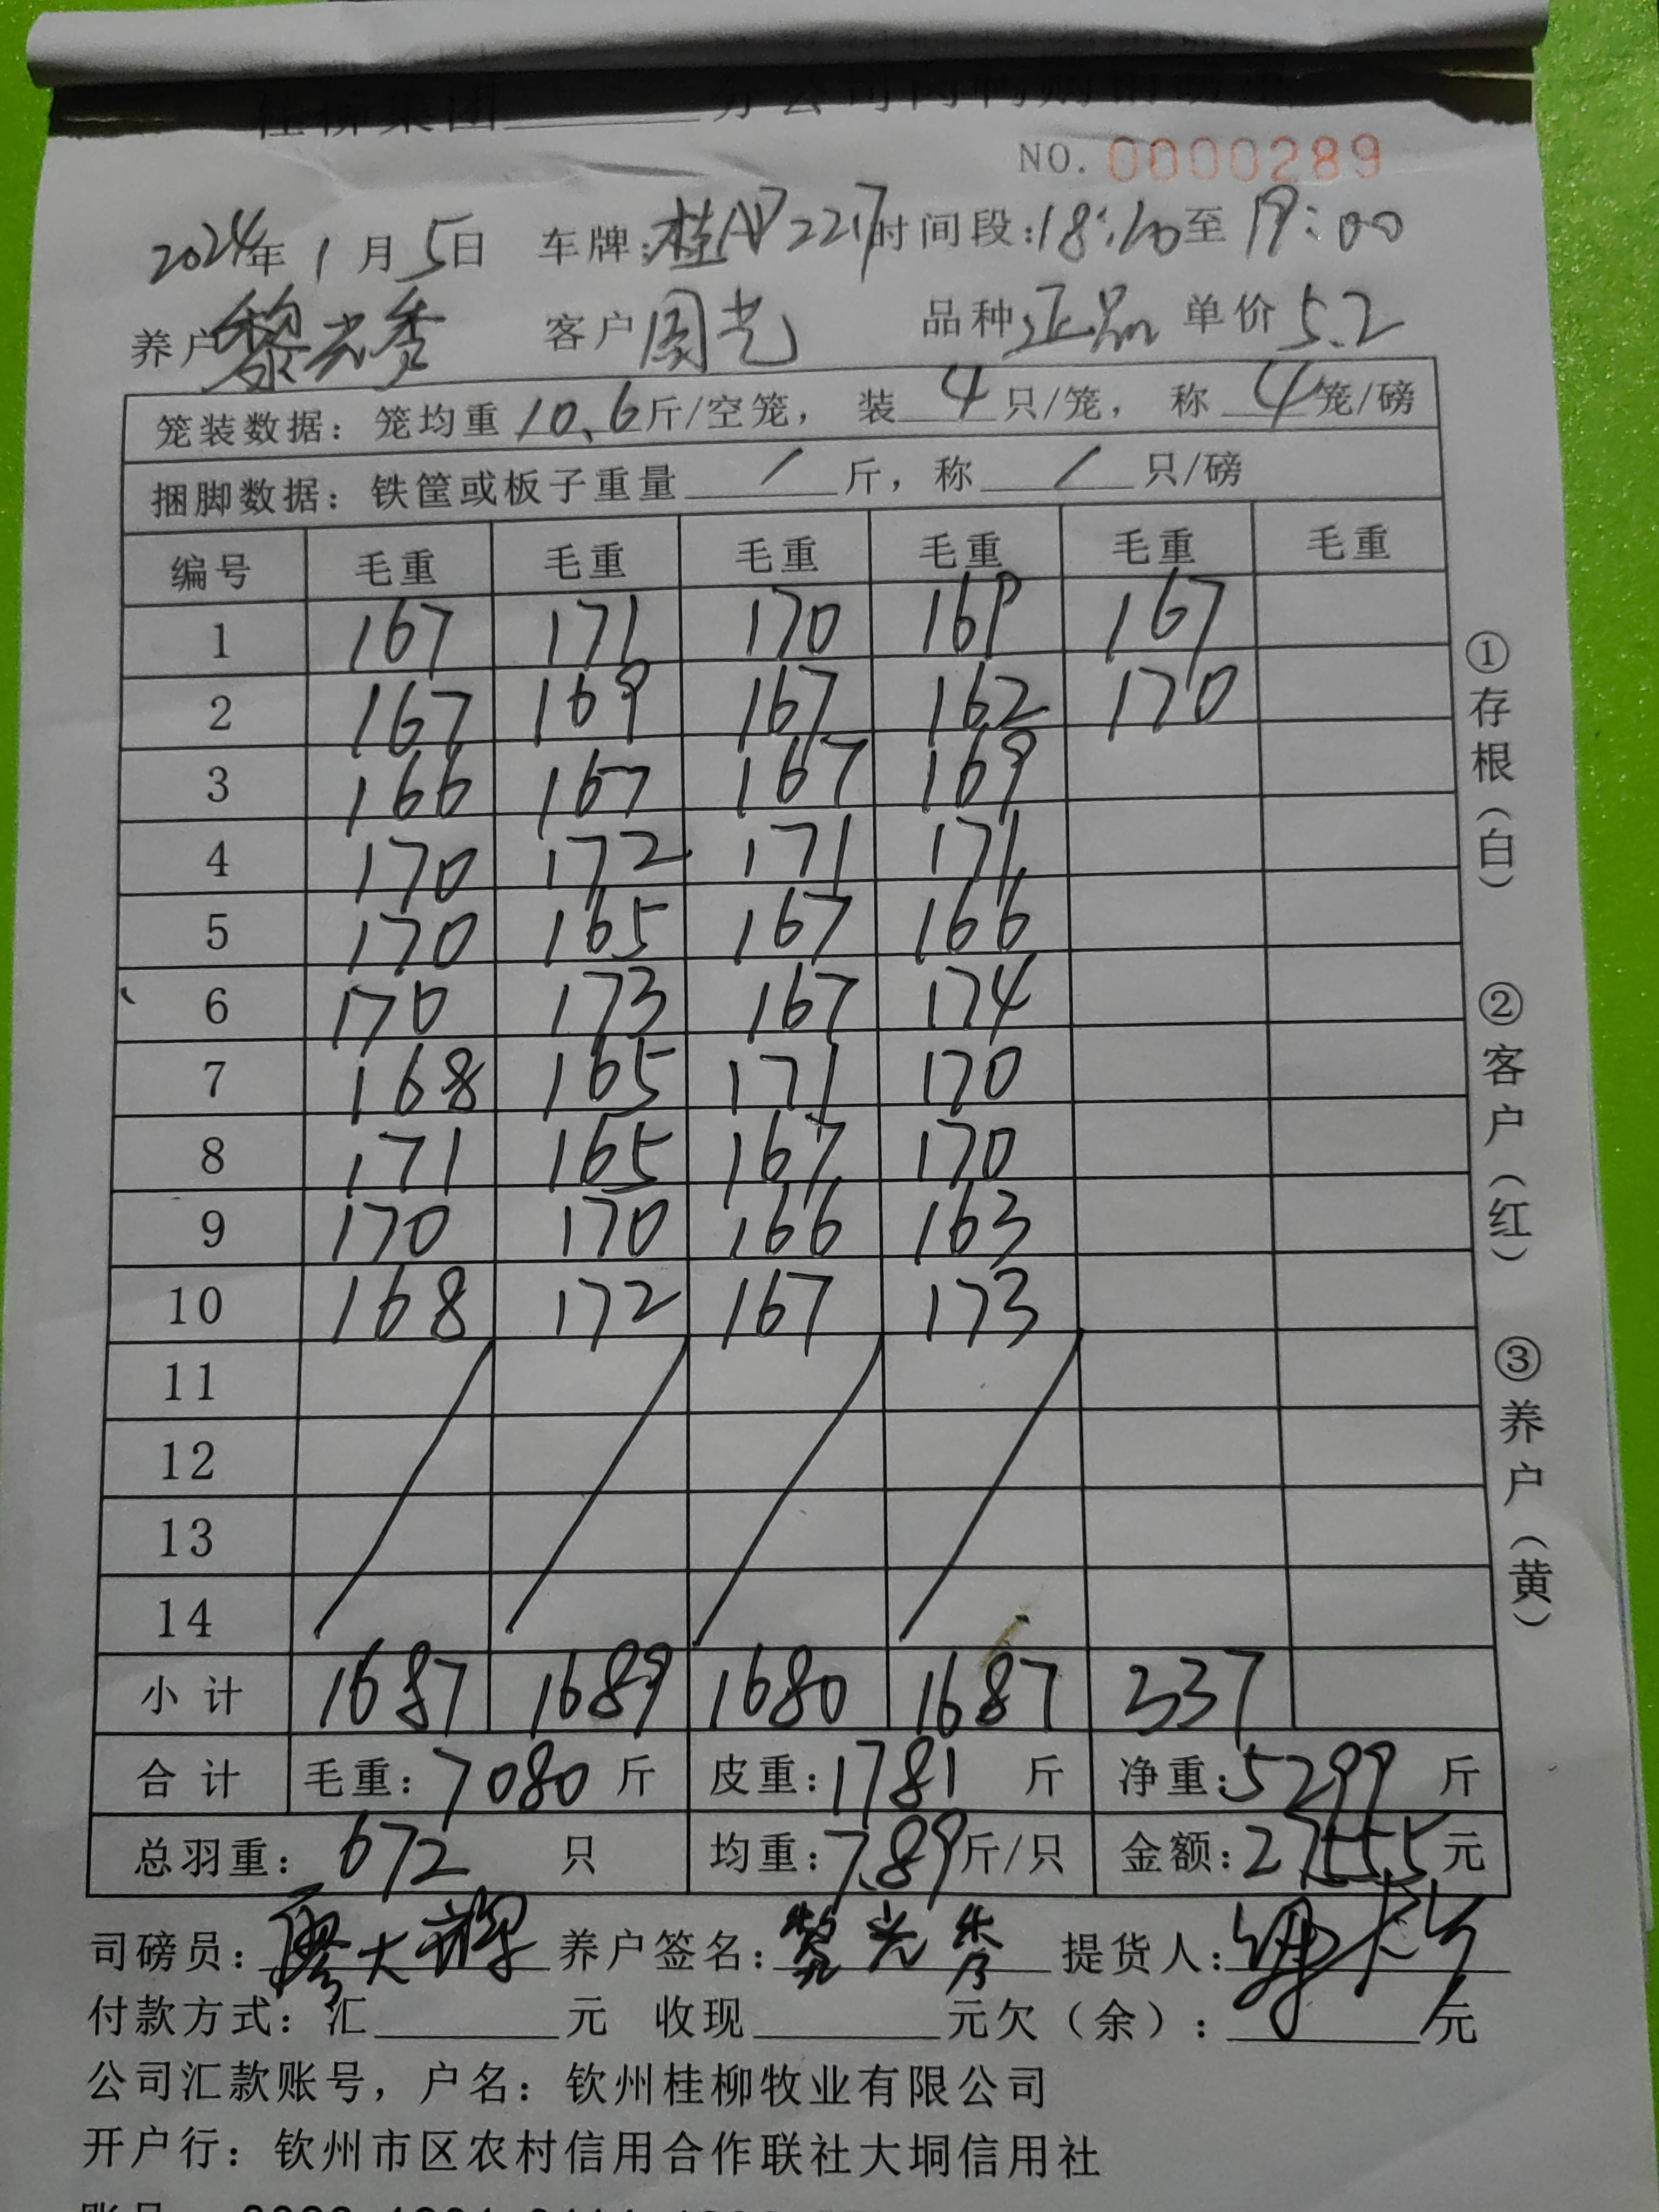 NO. 0000289
2024年 1月 5日 车牌: 时间段:18:20至19:00
养户黎光秀 客户周光 品种正品 单价5.2
笼装数据: 笼均重10.6斤/空笼, 装4只/笼, 称4笼/磅
捆脚数据: 铁筐或板子重量 / 斤, 称 / 只/磅
编号 毛重 毛重 毛重 毛重 毛重 毛重
1 167 171 170 169 167
2 167 169 167 162 170
3 166 167 167 169
4 170 172 171 171
5 170 165 167 166
6 170 173 167 174
7 168 165 171 170
8 171 165 167 170
9 170 170 166 163
10 168 172 167 173
11
12
13
14
小计 1687 1689 1680 1687 337
合计 毛重: 7080 斤 皮重: 1781 斤 净重: 5299 斤
总羽重: 672 只 均重: 7.89斤/只 金额: 27555元
司磅员: 廖大辉 养户签名: 黎光秀 提货人:
付款方式: 汇 元 收现 元欠(余): 元
公司汇款账号, 户名: 钦州桂柳牧业有限公司
开户行: 钦州市区农村信用合作联社大垌信用社
①存根(白) ②客户(红) ③养户(黄)